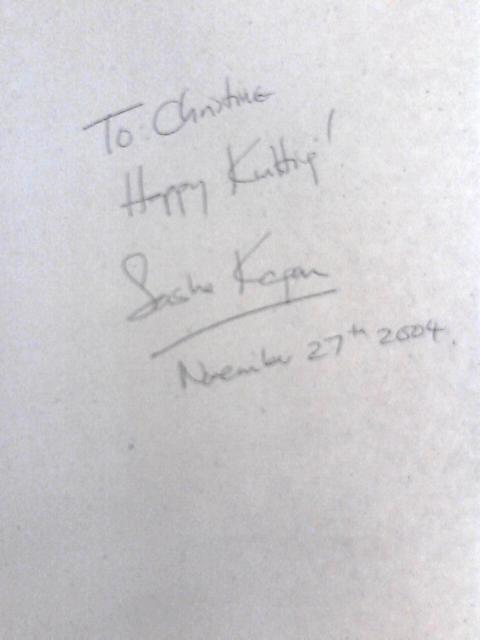 To: Christine
Happy Knitting!
Sasha Kagan
November 27th 2004.